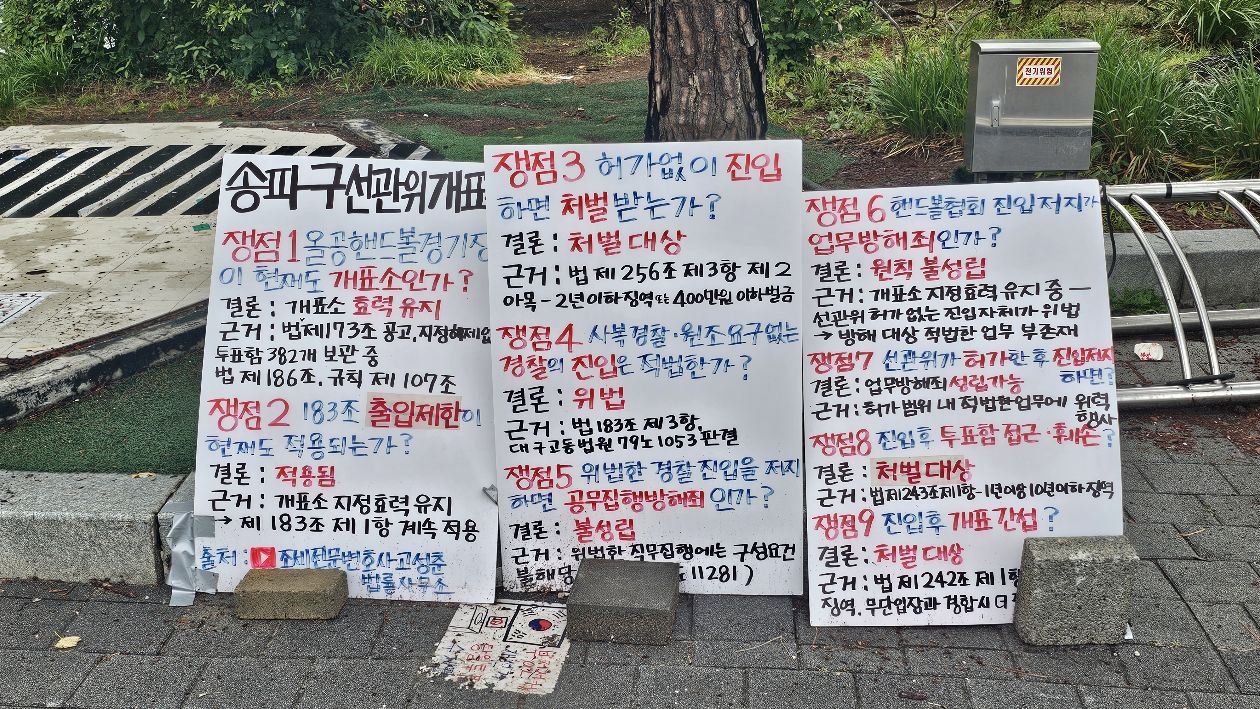 송파구선관위개표
쟁점1 올공핸드볼경기장
이 현재도 개표소인가?
결론 : 개표소 효력 유지
근거 : 법제173조 공고, 지정해제없
투표함 382개 보관 중
법 제186조. 규칙 제107조
쟁점2 183조 출입제한이
현재도 적용되는가?
결론 : 적용됨
근거 : 개표소 지정효력 유지
→ 제183조 제1항 계속 적용
출처 : 조세전문변호사고성춘
법률사무소
쟁점3 허가없이 진입
하면 처벌받는가?
결론 : 처벌 대상
근거 : 법 제256조 제3항 제2
아목 - 2년 이하 징역 또는 400만원 이하 벌금
쟁점4 사복경찰·원조요구없는
경찰의 진입은 적법한가?
결론 : 위법
근거 : 법 183조 제3항,
대구고등법원 79노1053 판결
쟁점5 위법한 경찰 진입을 저지
하면 공무집행방해죄 인가?
결론 : 불성립
근거 : 위법한 직무집행에는 구성요건
불해당 11281)
쟁점6 핸드볼협회 진입저지가
업무방해죄인가?
결론 : 원칙 불성립
근거 : 개표소 지정효력 유지 중 —
선관위 허가 없는 진입자체가 위법
→ 방해 대상 적법한 업무 부존재
쟁점7 선관위가 허가한 후 진입저지
하면?
결론 : 업무방해죄 성립가능
근거 : 허가 범위 내 적법한업무에 위력
행사
쟁점8 진입후 투표함 접근·훼손?
결론 : 처벌대상
근거 : 법제243조제1항-1년이상10년이하징역
쟁점9 진입후 개표간섭?
결론 : 처벌대상
근거 : 법 제242조 제1항
징역, 무단입장과 경합시 더
전기위험